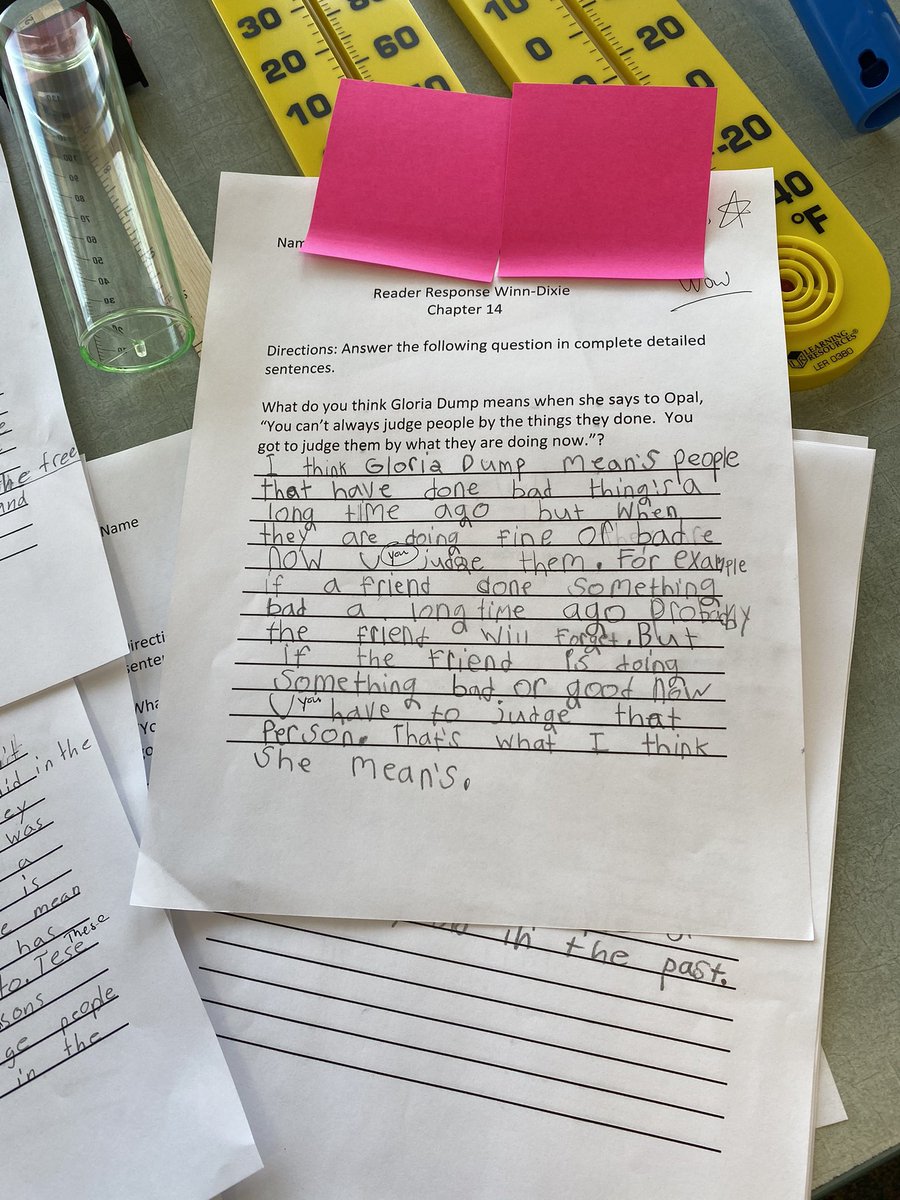 30
20
10
80
60
40
10
0
20
0
-20
40
°F
LEARNING
RESOURCES®
LER 0380
Wow
Reader Response Winn-Dixie
Chapter 14
Directions: Answer the following question in complete detailed
sentences.
What do you think Gloria Dump means when she says to Opal,
“You can’t always judge people by the things they done. You
got to judge them by what they are doing now.”?
I think Gloria Dump mean's people
that have done bad thing's a
long time ago but when
they are doing fine or bad
now U you judge them. For example
if a friend done something
bad a long time ago probably
the friend will forget. But
if the friend is doing
something bad or good now
U you have to judge that
person. That's what I think
she mean's.
Name
the tree
and
in the
ey
was
a
is
e mean
has These
to. Tese
sons
ge people
in the
in the past.